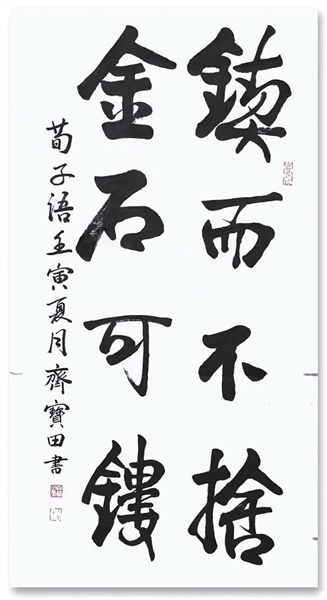 鍥而不捨
金石可鏤
荀子語壬寅夏月齊寶田書